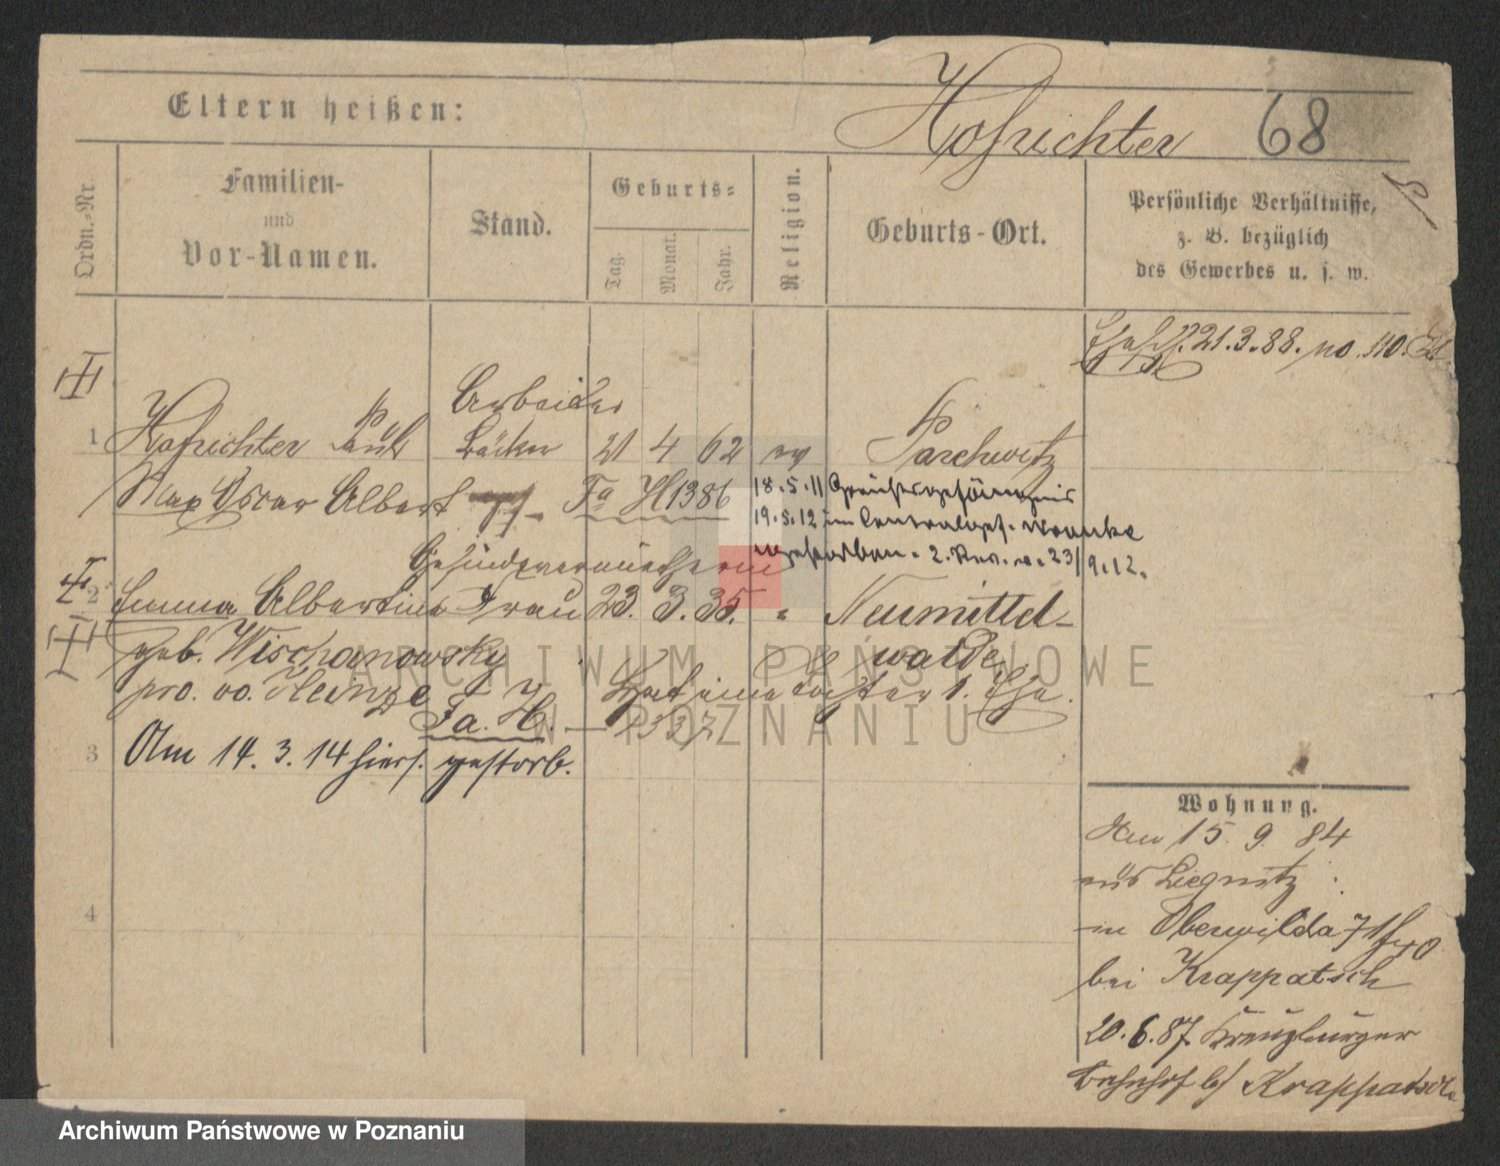 Eltern heißen:
Hofrichter 68
Ordn.-Nr.
Familien-
und
Vor-Namen.
Stand.
Geburts-
Tag.
Monat.
Jahr.
Religion.
Geburts-Ort.
Persönliche Verhältnisse,
z. B. bezüglich
des Gewerbes u. s. w.
21.3.88. no. 110.
Arbeiter
1 Hofrichter Paul Bäcker 21 4 62 ev Parchwitz
Max Oscar Albert Fa H1386
18.5.11 Gerichtsgefängnis
19.5.12 im Centralgef. Wronke
gestorben. 2. Rev. v. 23/9.12.
Gesindevermietherin
2 Emma Albertine Frau 23. 3. 35. " Neumittel-
walde
geb. Wischanowsky
pro. vo. Heinze Hat eine Tochter 1. Ehe.
Fa. H. — 1337
3 Am 14. 3. 14 hiers. gestorb.
4
Wohnung.
Am 15. 9. 84
aus Liegnitz
in Oberwilda 71
bei Krappatsch
20.6.87. Kreuzburger
Bahnhof b/ Krappatsch
ARCHIWUM PAŃSTWOWE
W POZNANIU
Archiwum Państwowe w Poznaniu